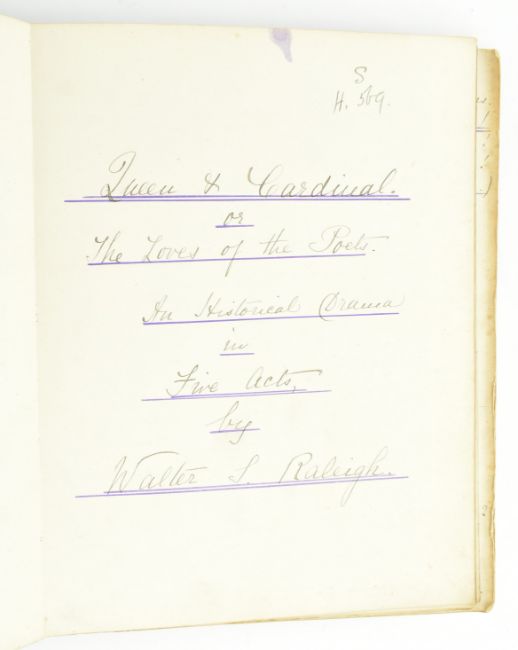 S
H. 569.
Queen & Cardinal.
or
The Loves of the Poets.
An Historical Drama
in
Five Acts,
by
Walter S. Raleigh.